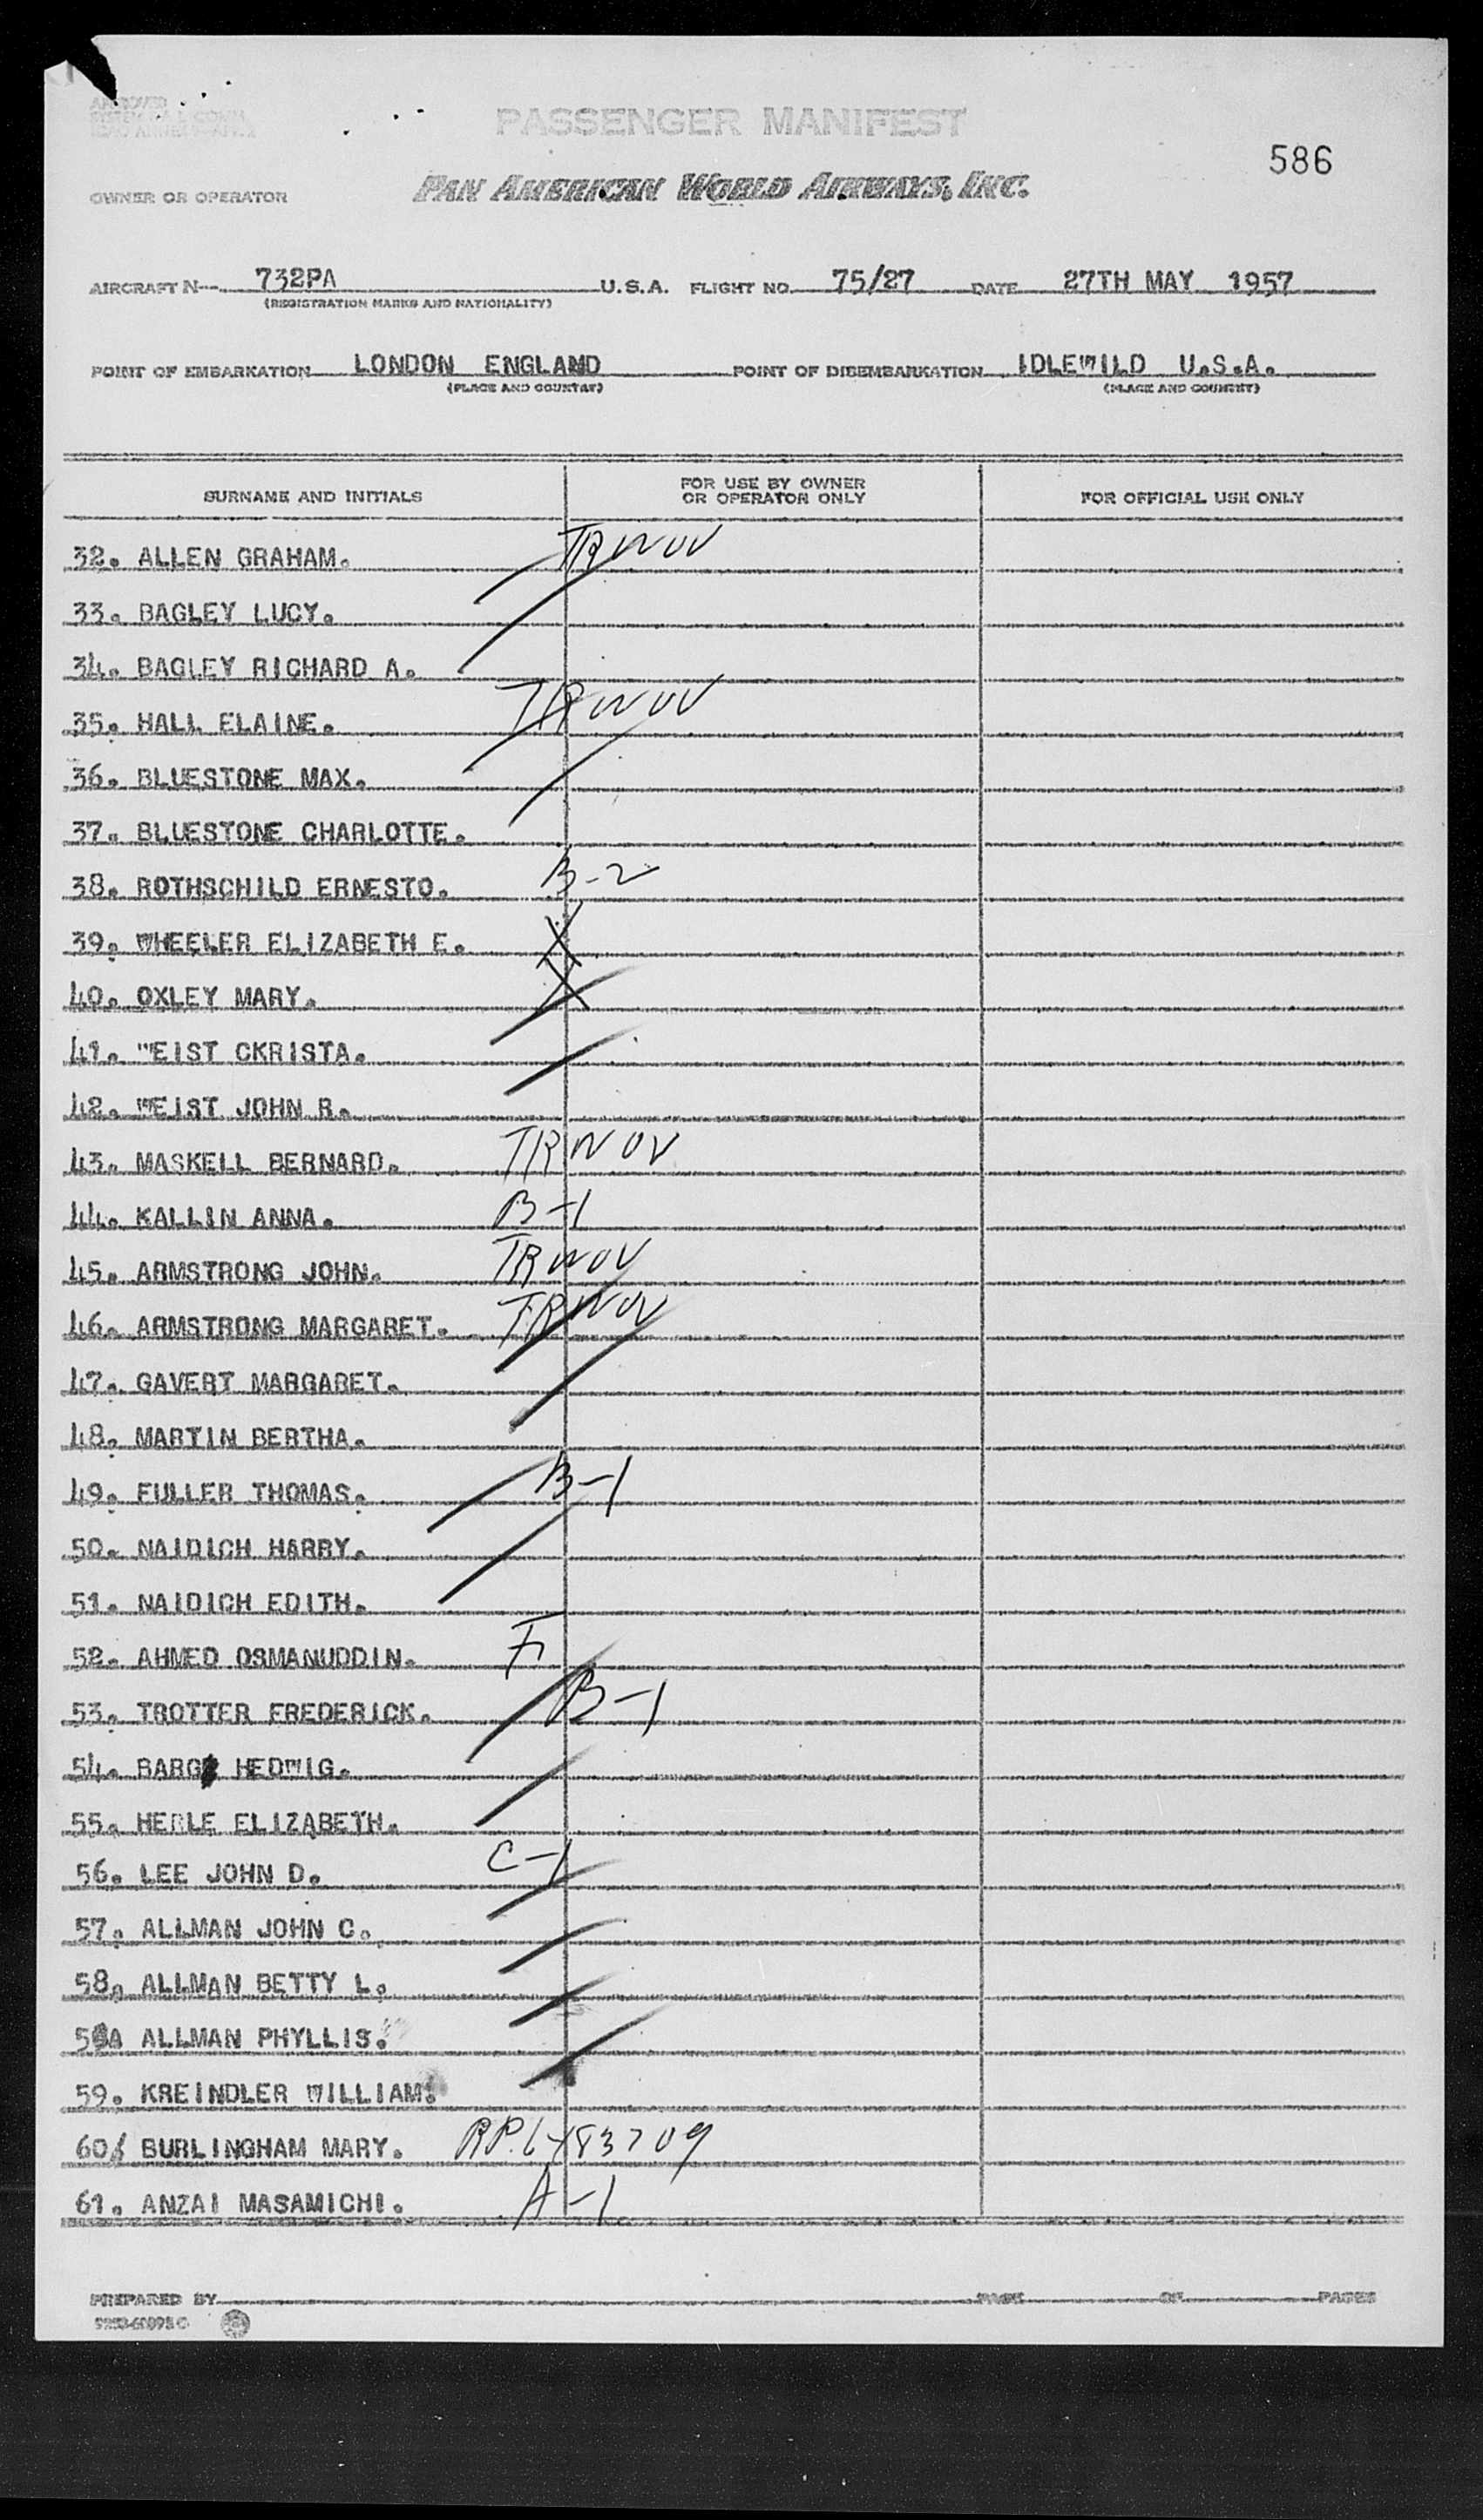 PASSENGER MANIFEST
586
OWNER OR OPERATOR PAN AMERICAN WORLD AIRWAYS, INC.
AIRCRAFT N 732PA U.S.A. FLIGHT NO. 75/27 DATE 27TH MAY 1957
(REGISTRATION MARKS AND NATIONALITY)
POINT OF EMBARKATION LONDON ENGLAND POINT OF DISEMBARKATION IDLEWILD U.S.A.
(PLACE AND COUNTRY) (PLACE AND COUNTRY)
SURNAME AND INITIALS FOR USE BY OWNER OR OPERATOR ONLY FOR OFFICIAL USE ONLY
32. ALLEN GRAHAM. TRWOV
33. BAGLEY LUCY.
34. BAGLEY RICHARD A.
35. HALL ELAINE. TRWOV
36. BLUESTONE MAX.
37. BLUESTONE CHARLOTTE.
38. ROTHSCHILD ERNESTO. B-2
39. WHEELER ELIZABETH E. X
40. OXLEY MARY. X
41. WEIST CKRISTA.
42. WEIST JOHN R.
43. MASKELL BERNARD. TRWOV
44. KALLIN ANNA. B-1
45. ARMSTRONG JOHN. TRWOV
46. ARMSTRONG MARGARET. TRWOV
47. GAVERT MARGARET.
48. MARTIN BERTHA.
49. FULLER THOMAS. B-1
50. NAIDICH HARRY.
51. NAIDICH EDITH.
52. AHMED OSMANUDDIN. F
53. TROTTER FREDERICK. B-1
54. BARG HEDWIG.
55. HERLE ELIZABETH.
56. LEE JOHN D. C-1
57. ALLMAN JOHN C.
58. ALLMAN BETTY L.
58A ALLMAN PHYLLIS.
59. KREINDLER WILLIAM.
60. BURLINGHAM MARY. RP.6483709
61. ANZAI MASAMICHI. A-1
PREPARED BY PAGE OF PAGES